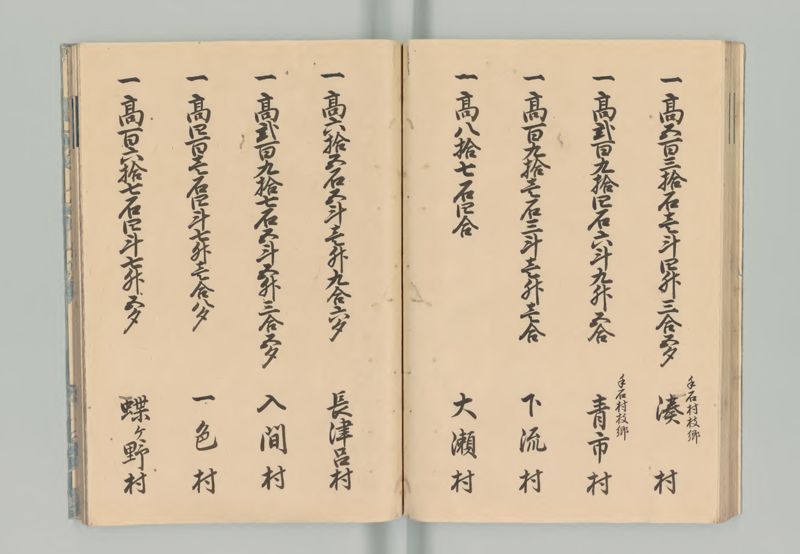 一高五百三拾石壱斗四升三合五夕
手石村枝郷
湊村
一高弐百九拾四石六斗九升五合
手石村枝郷
青市村
一高百九拾壱石三斗壱升壱合
下流村
一高八拾七石四合
大瀬村
一高六拾五石五斗壱升九合六夕
長津呂村
一高弐百九拾七石五斗五升三合五夕
入間村
一高四百壱石四斗七升壱合八夕
一色村
一高百六拾七石四斗七升五夕
蝶ヶ野村